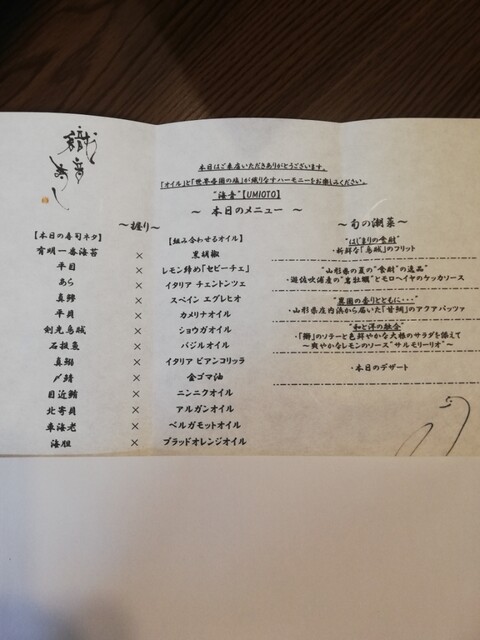 織音寿し
本日はご来店いただきありがとうございます。
「オイル」と「世界各国の塩」が織りなすハーモニーをお楽しみください。
"海音"【UMIOTO】
～ 本日のメニュー ～
～握り～
【本日の寿司ネタ】 【組み合わせるオイル】
有明一番海苔 × 黒胡椒
平目 × レモン締め「セビーチェ」
あら × イタリア チェントンツェ
真鯵 × スペイン エグレヒオ
平貝 × カメリナオイル
剣先烏賊 × ショウガオイル
石垣鯛 × バジルオイル
真鯛 × イタリア ビアンコリッラ
〆鯖 × 金ゴマ油
目近鮪 × ニンニクオイル
北寄貝 × アルガンオイル
車海老 × ベルガモットオイル
海胆 × ブラッドオレンジオイル
～旬の潮菜～
"はじまりの食財"
・新鮮な「烏賊」のフリット
"山形県の夏の"食財"の逸品"
・遊佐吹浦産の"岩牡蠣"とモロヘイヤのケッカソース
"農園の香りとともに・・・"
・山形県庄内浜から届いた「甘鯛」のアクアパッツァ
"和と洋の融合"
・「鰤」のソテーと色鮮やかな大根のサラダを添えて
～爽やかなレモンのソース"サルモリーリオ"～
・本日のデザート